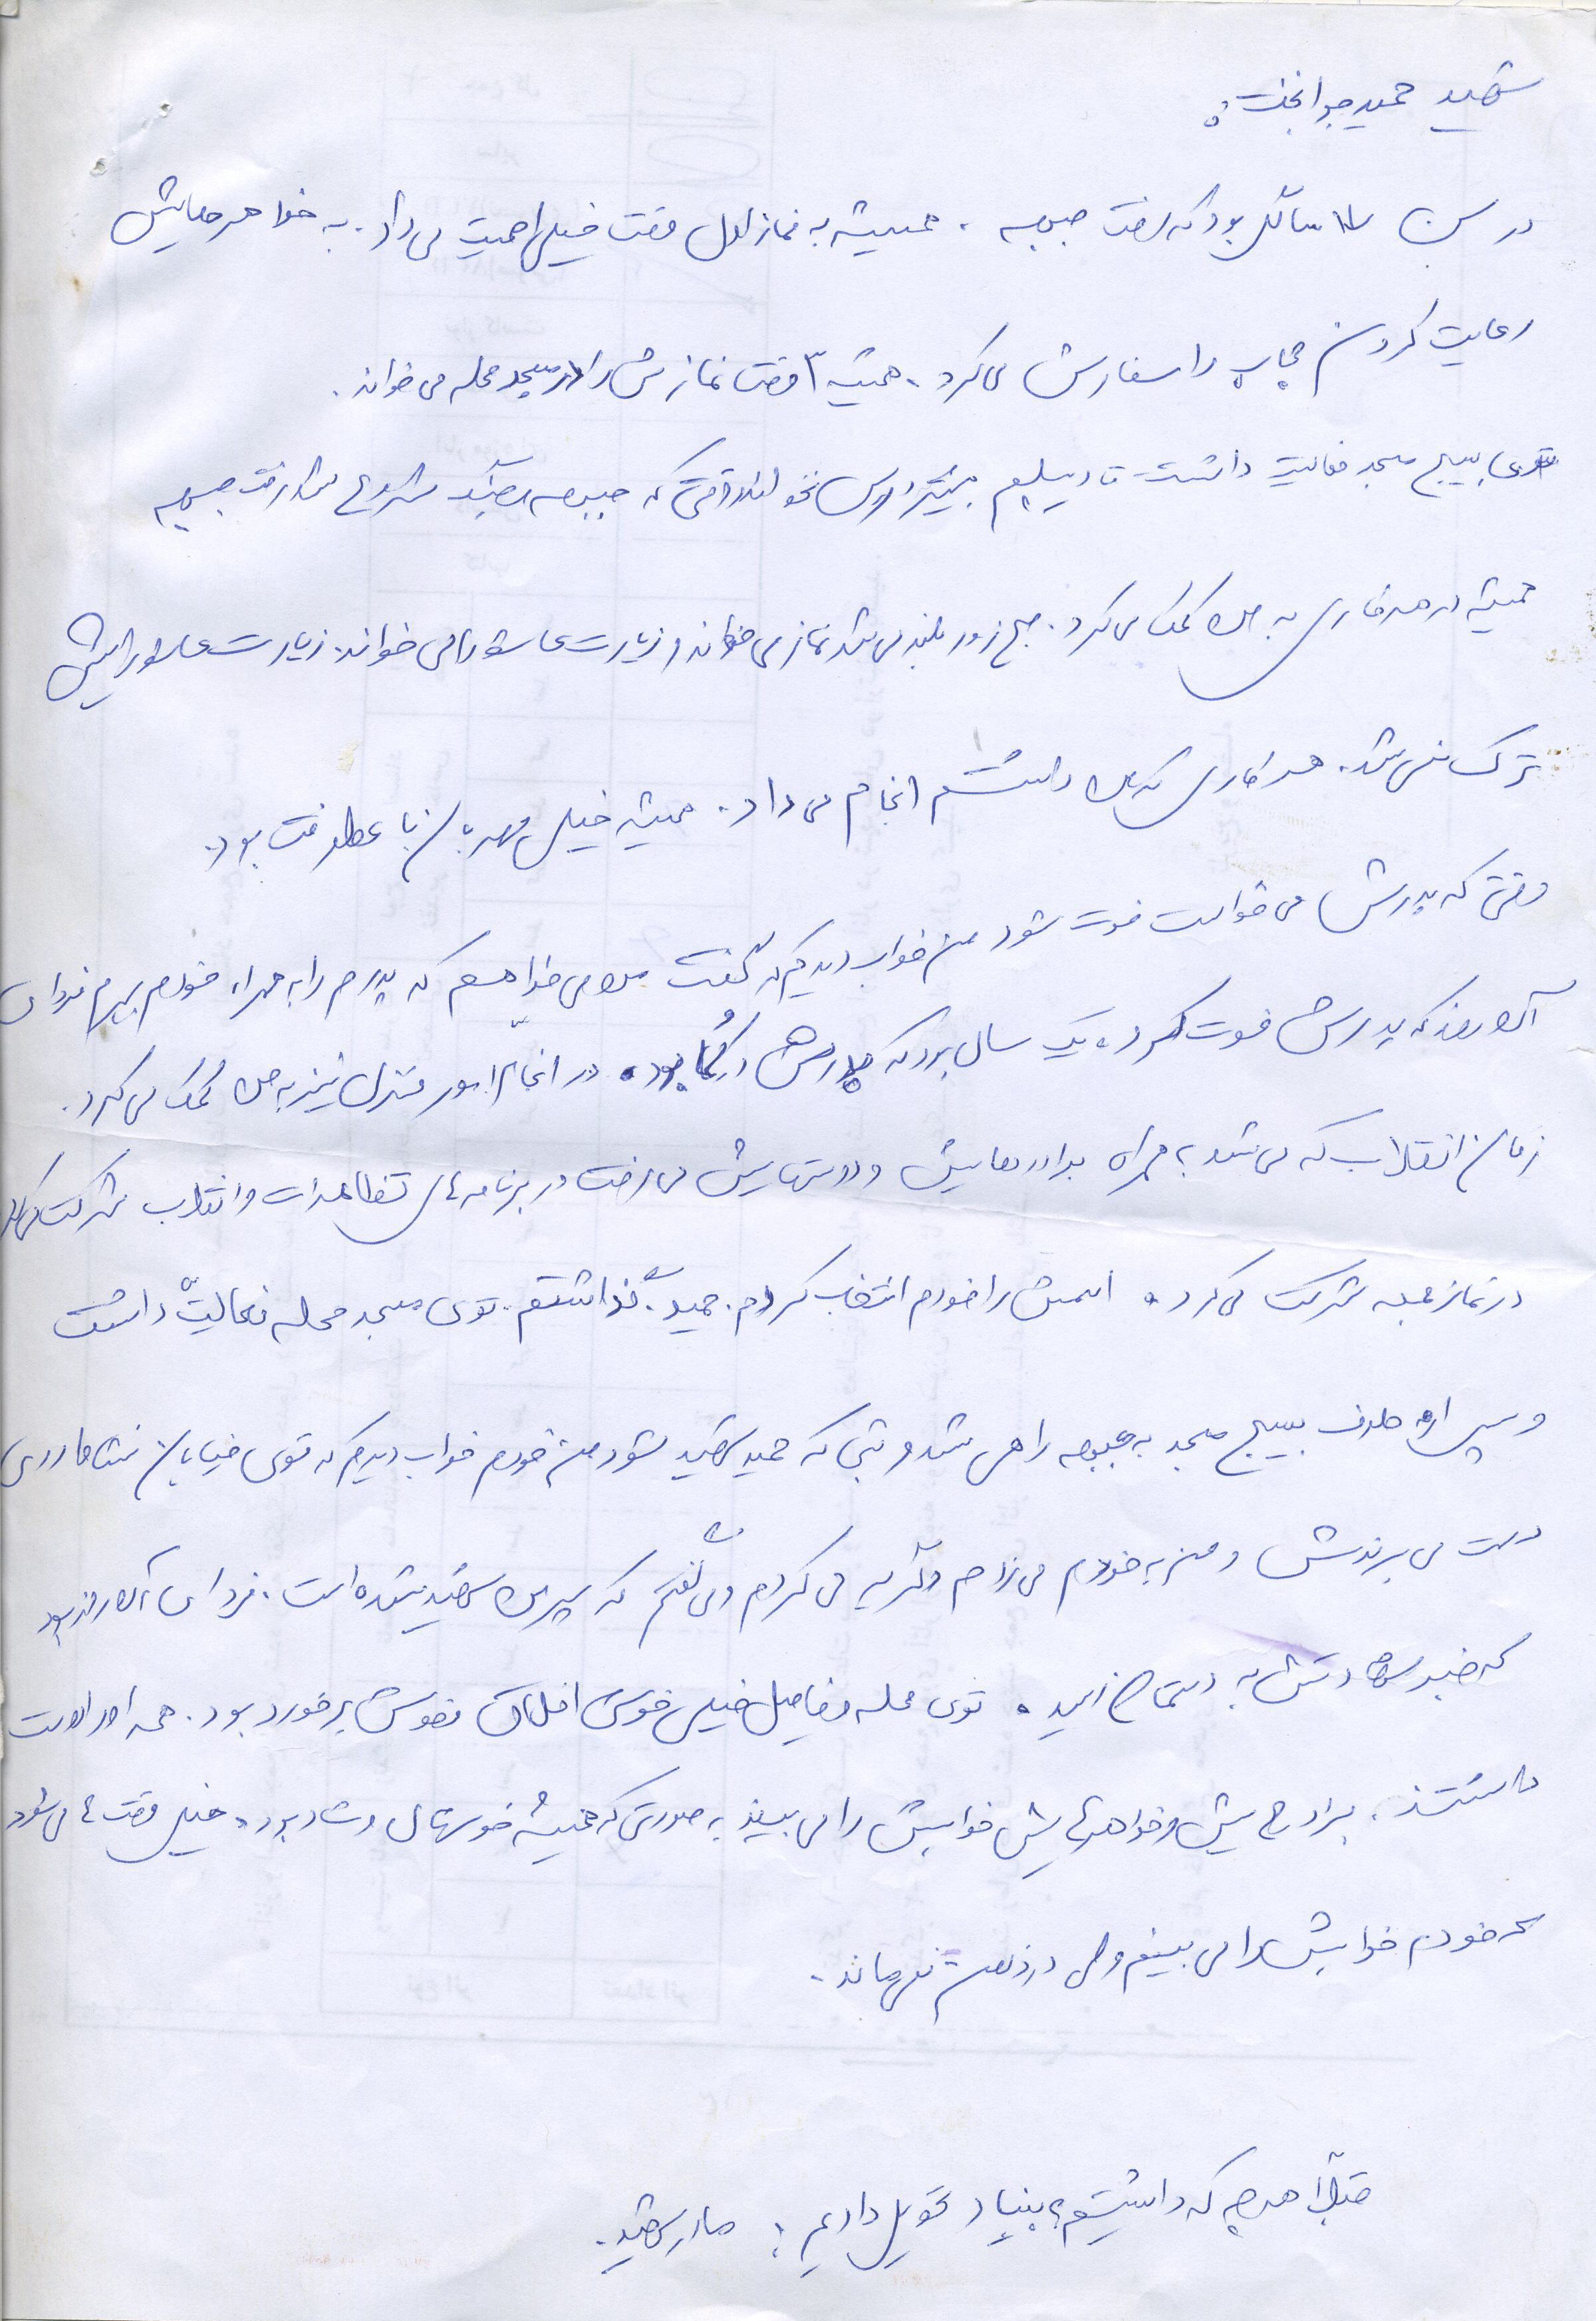 شهید حمید جوانبخت:
در سن ۱۷ سالگی بود که رفت جبهه . همیشه به نماز اول وقت خیلی اهمیت می داد . به خواهرهایش
رعایت کردن حجاب را سفارش می کرد . همیشه ۳ وقت نمازش را در مسجد محله می خواند .
توی بسیج مسجد فعالیت داشت تا دیپلم بیشتر درس نخواند وقتی که جبهه جنگ شروع شد رفت جبهه
همیشه در هر کاری به من کمک می کرد . صبح زود بلند می شد نماز می خواند و زیارت عاشورا می خواند . زیارت عاشورایش
ترک نمی شد . هر کاری که من داشتم انجام می داد . همیشه خیلی مهربان با عطوفت بود .
وقتی که پدرش می خواست فوت شود من خواب دیدم که گفت من می خواهم که پدرم را به همراه خودم ببرم فردای
آن روز که پدرش فوت کرد . یک سال بود که پدرش در کما بود . در انجام امور منزل نیز به من کمک می کرد .
زمان انقلاب که می شد به همراه برادرهایش و دوستهایش می رفت در برنامه های تظاهرات و انقلاب شرکت می کرد
در نماز جمعه شرکت می کرد . اسمش را خودم انتخاب کردم . حمید گذاشتم . توی مسجد محله فعالیت داشت
و سپس از طرف بسیج مسجد به جبهه راهی شد وقتی که حمید شهید شود من خودم خواب دیدم که توی خیابان تنها روی
دست می برندش و من به خودم می زدم و گریه می کردم و می گفتم که پسر من شهید شده است . فردای آن روز بود
که خبر شهادتش به دستمان رسید . توی محله و فامیل خیلی خوش اخلاق خوش برخورد بود . همه او را دوست
داشتند . برادرهایش و خواهرهایش خوابش را می بینند به صورتی که همیشه خوشحال و شاد بود . خیلی وقت ها می شود
که خودم خوابش را می بینم ولی در ذهنم نمی ماند .
قبلاً هر چه که داشتیم به بنیاد تحویل دادیم . مادر شهید .